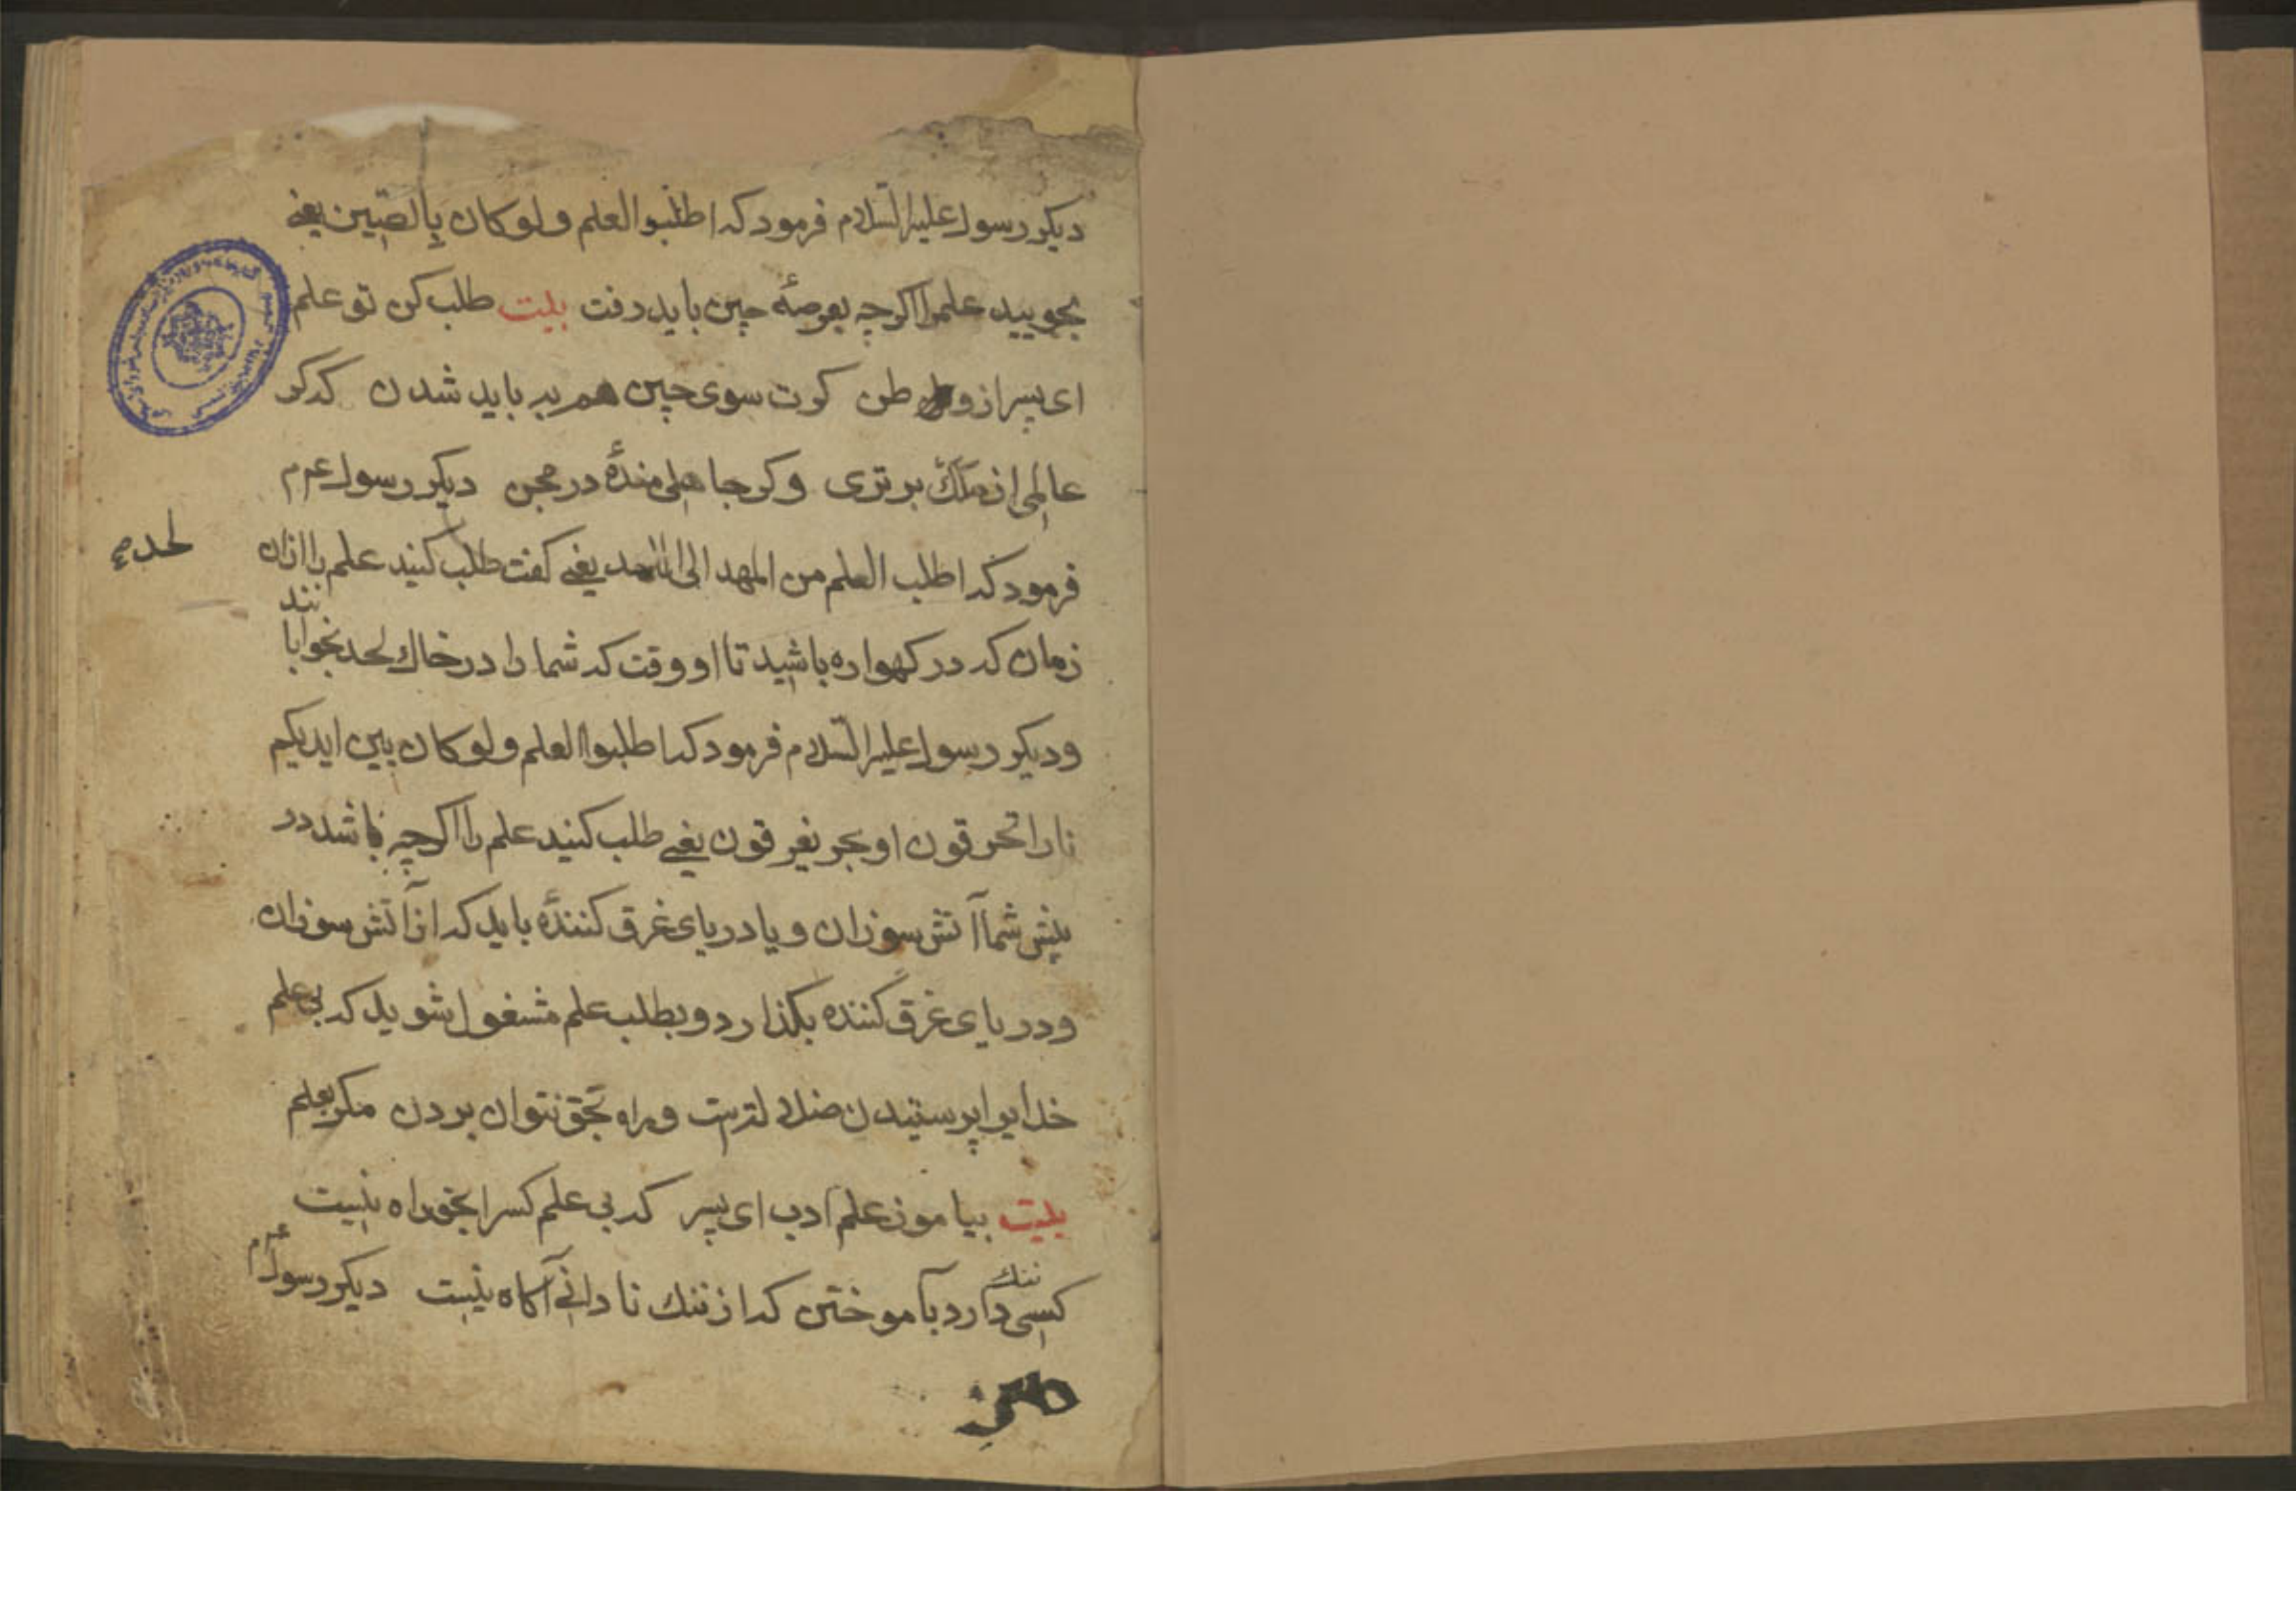 دیکر رسول علیه السّلام فرمود که اطلبوا العلم ولو کان بالصّین یعنی
بجویید علم را اکرچه بعرصهٔ چین باید رفت بیت طلب کن تو علم
ای پسر از وطن کرت سوی چین هم بباید شدن که کر
عالمی از ملک برتری وکر جاهلی مندهٔ در محن دیکر رسول عم
فرمود که اطلب العلم من المهد الی اللحد یعنی کفت طلب کنید علم را ازان
لحد
زمان که در کهواره باشید تا او وقت که شما را در خاك لحد بخوابانند
ودیکر رسول علیه السّلام فرمود که اطلبوا العلم ولو کان بین ایدیکم
نارا تحرقون او بحر یغرقون یعنی طلب کنید علم را اکرچه باشد در
پیش شما آتش سوزان و یا دریای غرق کنندهٔ باید که از آتش سوزان
ودریای غرق کننده بکذارد و بطلب علم مشغول شوید که بی علم
خدایرا پرستیدن ضلالتست وراه بحق نتوان بردن مکر بعلم
بیت بیاموز علم ادب ای پسر که بی علم کس را بحق راه نیست
کسی ننك دارد بآموختن که از ننك نادانی آکاه نیست دیکر رسول عم